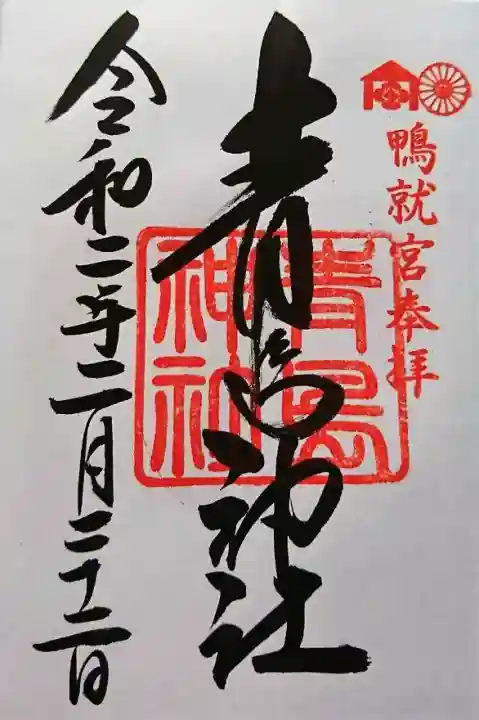 鴨就宮奉拝
青島神社
青島神社
令和二年二月二十二日